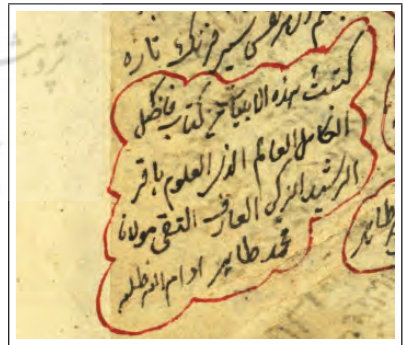 سیر فرنگ تازه
کتبت هذه الابیات من کتاب فاضل
الکامل العالم الذی العلوم باقر
الرشید الزکی العارف التقی مولانا
محمد طاهر ادام الله ظله
طاهر